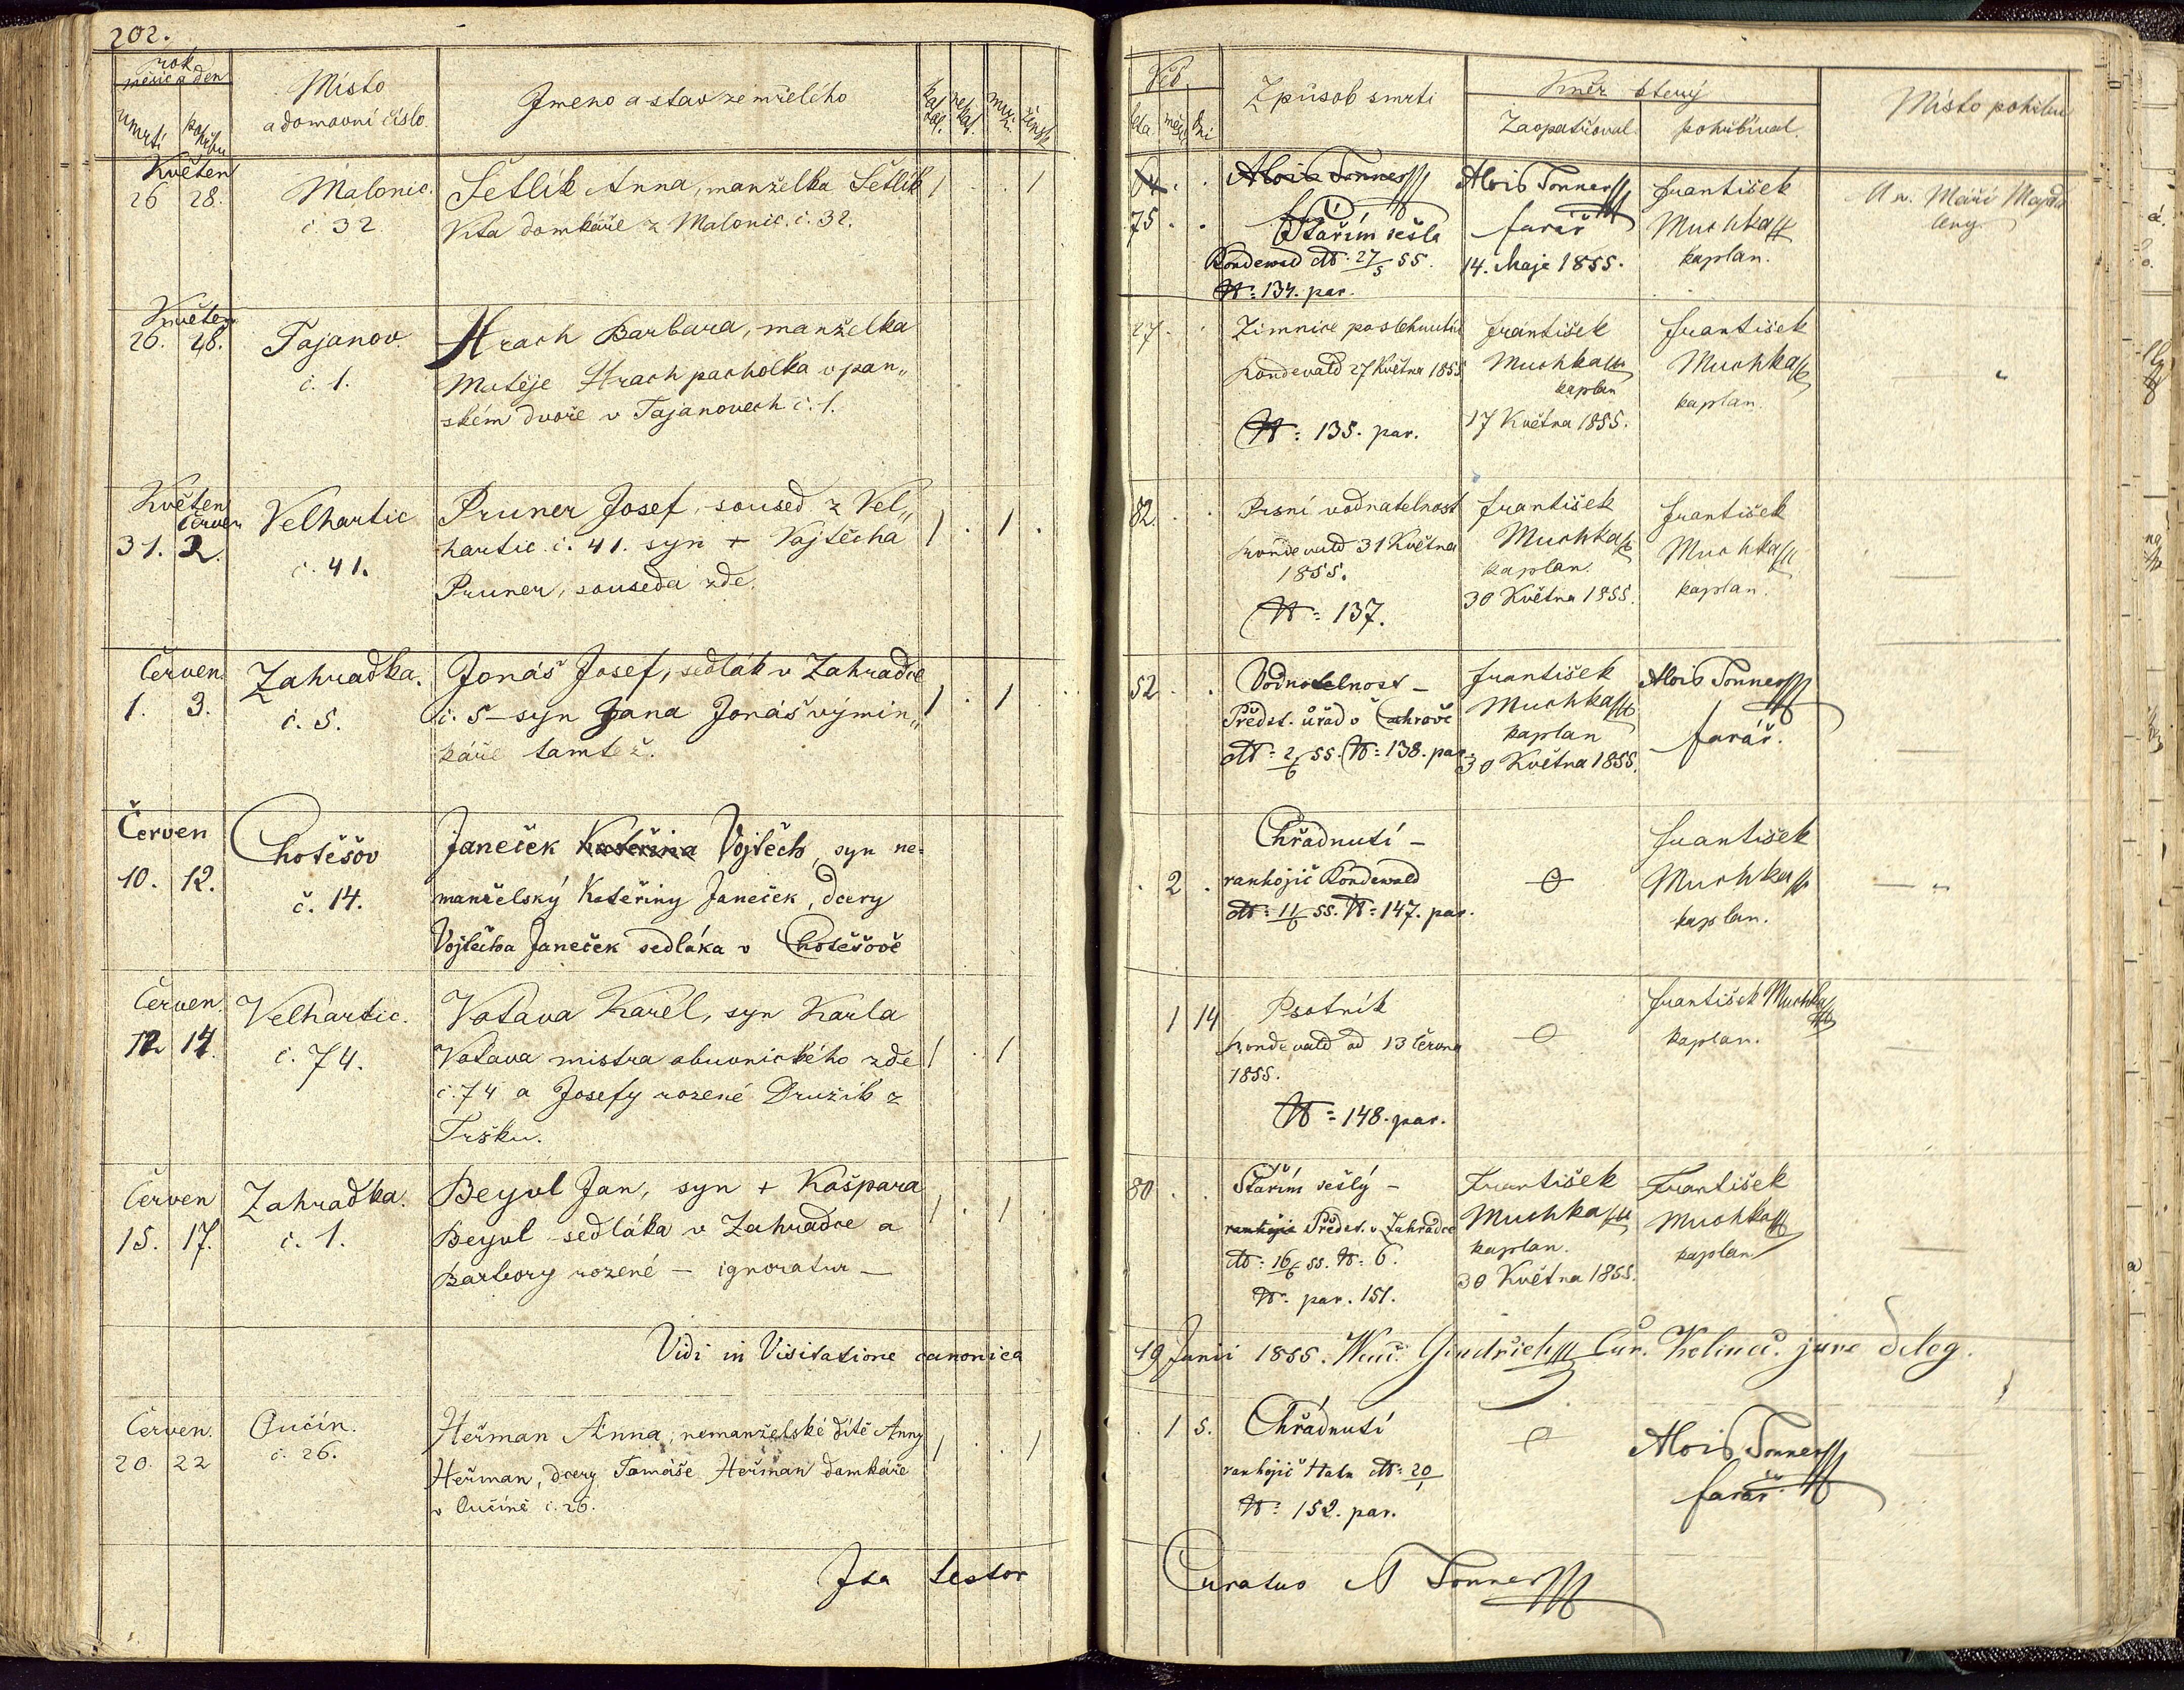 202.
rok
měsíc a den
úmrtí
pohřbu
Místo
a domovní číslo.
Jmeno a stav zemřelího
katol.
nekat.
muž.
žensk.
Květen
26 28.
Malonic.
č. 32
Šetlík Anna, manželka Šetlík
Víta domkáře z Malonic. č. 32.
1 . . 1
Květen
26. 28.
Tajanov.
č. 1.
Hrach Barbara, manželka
Matěje Hrach pacholka v pan„
ském dvoře v Tajanovech č. 1.
Květen
červen
31. 2.
Velhartic
č. 41.
Pruner Josef, soused z Vel„
hartic. č. 41. syn + Vojtěcha
Pruner, souseda zde.
1 . 1 .
Červen.
1. 3.
Zahradka.
č. 5.
Jonáš Josef, sedlák v Zahradce
č. 5 – syn Jana Jonáš výmin„
káře tamtéž.
1 . 1
Červen
10. 12.
Chotěšov
č. 14.
Janeček Kateřina Vojtěch, syn ne=
manželský Kateřiny Janeček, dcery
Vojtěcha Janeček sedláka v Chotěšově
Červen.
12 14.
Velhartic.
č. 74.
Votava Karel, syn Karla
Votava mistra obuvnického zde
č. 74 a Josefy rozené Družík z
Tršku.
1 . 1
Červen
15. 17.
Zahradka.
č. 1.
Beyvl Jan, syn + Kašpara
Beyvl sedláka v Zahradce a
Barbory rozené – ignoratur –
1 . 1 .
Vidi in Visitatione canonica
Červen.
20. 22
Čučín.
č. 26.
Heřman Anna, nemanželské dítě Anny
Heřman, dcery Tomáše Heřman domkáře
v Čučíně č. 26.
1 . . 1
Ita testor
Věk
léta
měsí.
dni
Způsob smrti
Kněz který
Zaopatřoval.
pohřbíval.
Místo pohřbu
75 . .
Alois Tonner
Stářím sešla
Rondewald dtt: 27/5 55.
N: 134. par.
Alois Tonner
farář
14. Maje 1855.
František
Muchka
kaplan.
U sv. Máří Majda
leny.
27. .
Zimnice
Rondevald 27 Května 1855
N: 135. par.
František
Muchka
kaplan
17 Května 1855.
František
Muchka
kaplan.
— „
82. . .
Prsní vodnatelnost
Rondevald 31 Května
1855.
N: 137.
František
Muchka
kaplan.
30 Května 1855.
František
Muchka
kaplan.
—
52 . .
Vodnatelnost –
Předst. úřad v
dtt: 2/6 55. N: 138. par.
František
Muchka
kaplan
30 Května 1855.
Alois Tonner
farář.
—
. 2 .
Chřadnutí –
ranhojič Rondewald
dtt: 11/6 55. N: 147. par.
František
Muchka
kaplan.
— „
1 14
Psotník
Rondevald od 13 června
1855.
N: 148. par.
František Muchka
kaplan.
—
80 . .
Stářím sešlý –
ranhojič Předst. v Zahradce
dtt: 16/6 55. N: 6.
N: par. 151.
František
Muchka
kaplan.
30 Května 1855.
František
Muchka
kaplan
—
19 Junii 1855. Gindřich Cur. jure deleg.
. 1 5.
Chřádnutí
ranhojič dtt: 20/
N: 152. par.
Alois Tonner
farář
—
Curatus A Tonner